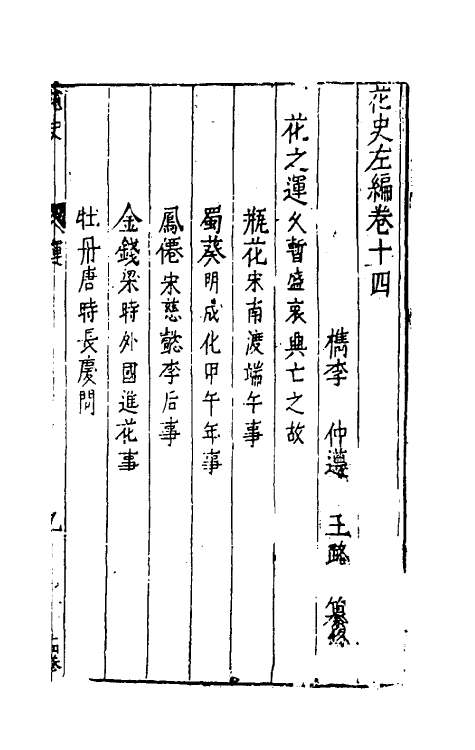 花史左編卷十四
檇李 仲遵 王路 纂修
花之運久暫盛衰興亡之故
瓶花宋南渡端午事
蜀葵明成化甲午年事
鳳僊宋慈懿李后事
金錢梁時外國進花事
牡丹唐時長慶間
花史